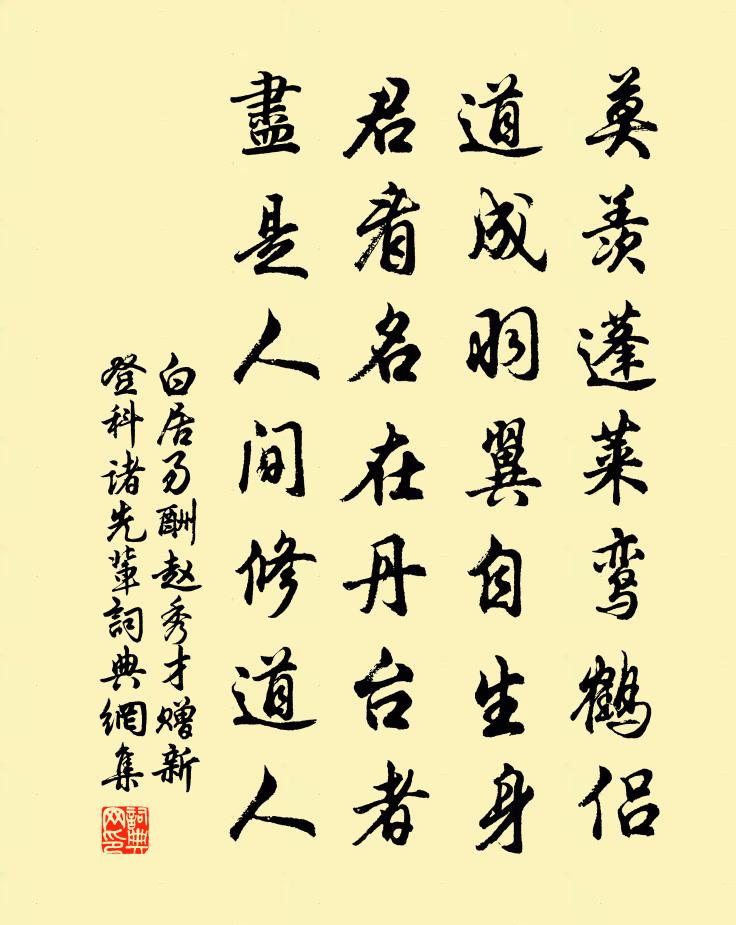 莫羨蓬莱鸾鶴侣
道成羽翼自生身
君看名在丹台者
盡是人间修道人
白居易酬赵秀才赠新
登科诸先輩詞典網集
詞典
网印